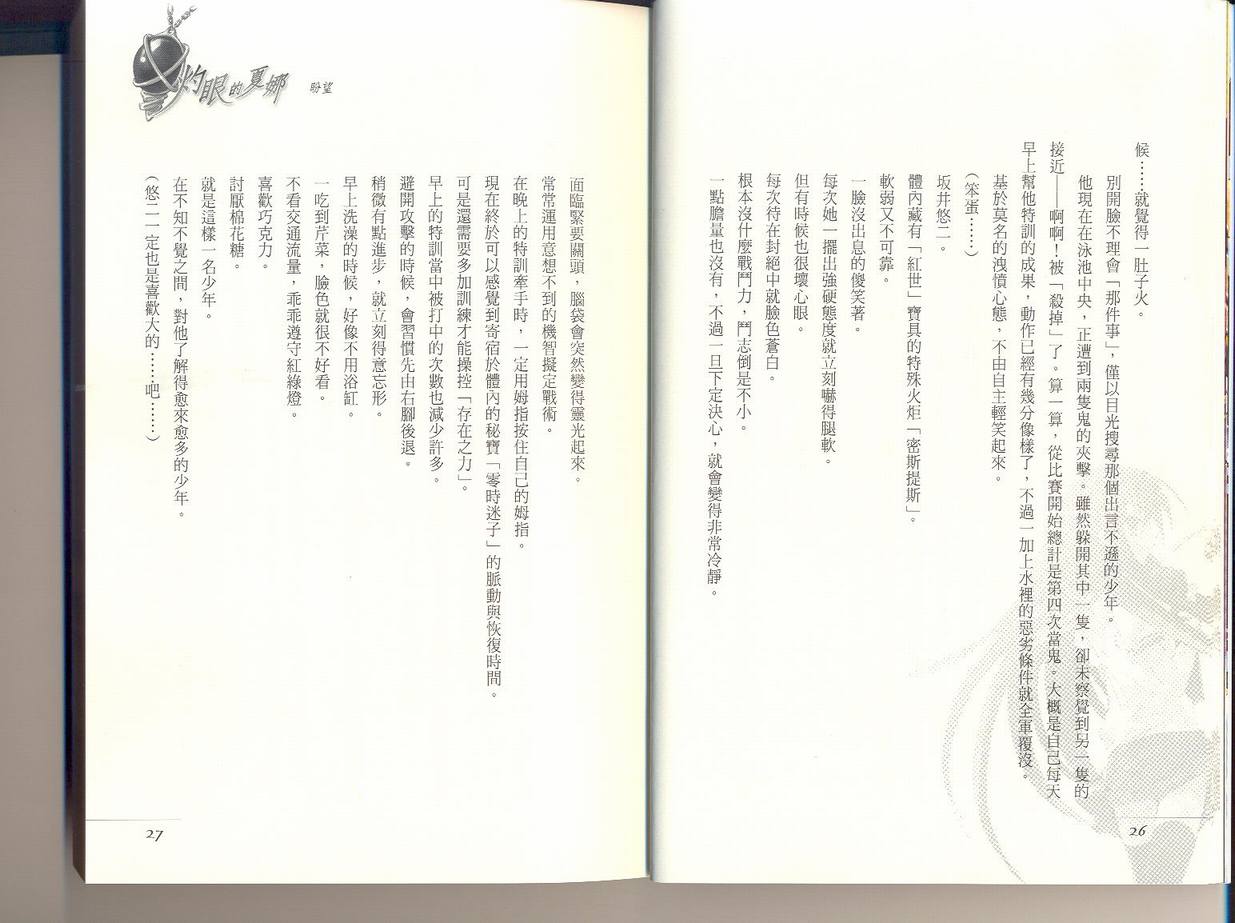 候……就覺得一肚子火。
別開臉不理會「那件事」，僅以目光搜尋那個出言不遜的少年。
他現在在泳池中央，正遭到兩隻鬼的夾擊。雖然躲開其中一隻，卻未察覺到另一隻的
接近——啊啊！被「殺掉」了。算一算，從比賽開始總計是第四次當鬼。大概是自己每天
早上幫他特訓的成果，動作已經有幾分像樣了，不過一加上水裡的惡劣條件就全軍覆沒。
基於莫名的洩憤心態，不由自主輕笑起來。
（笨蛋……）
坂井悠二。
體內藏有「紅世」寶具的特殊火炬「密斯提斯」。
軟弱又不可靠。
一臉沒出息的傻笑著。
每次她一擺出強硬態度就立刻嚇得腿軟。
但有時候也很壞心眼。
每次待在封絕中就臉色蒼白。
根本沒什麼戰鬥力，鬥志倒是不小。
一點膽量也沒有，不過一旦下定決心，就會變得非常冷靜。
26
灼眼的夏娜 盼望
面臨緊要關頭，腦袋會突然變得靈光起來。
常常運用意想不到的機智擬定戰術。
在晚上的特訓牽手時，一定用姆指按住自己的姆指。
現在終於可以感覺到寄宿於體內的秘寶「零時迷子」的脈動與恢復時間。
可是還需要多加訓練才能操控「存在之力」。
早上的特訓當中被打中的次數也減少許多。
避開攻擊的時候，會習慣先由右腳後退。
稍微有點進步，就立刻得意忘形。
早上洗澡的時候，好像不用浴缸。
一吃到芹菜，臉色就很不好看。
不看交通流量，乖乖遵守紅綠燈。
喜歡巧克力。
討厭棉花糖。
就是這樣一名少年。
在不知不覺之間，對他了解得愈來愈多的少年。
（悠二一定也是喜歡大的……吧……）
27